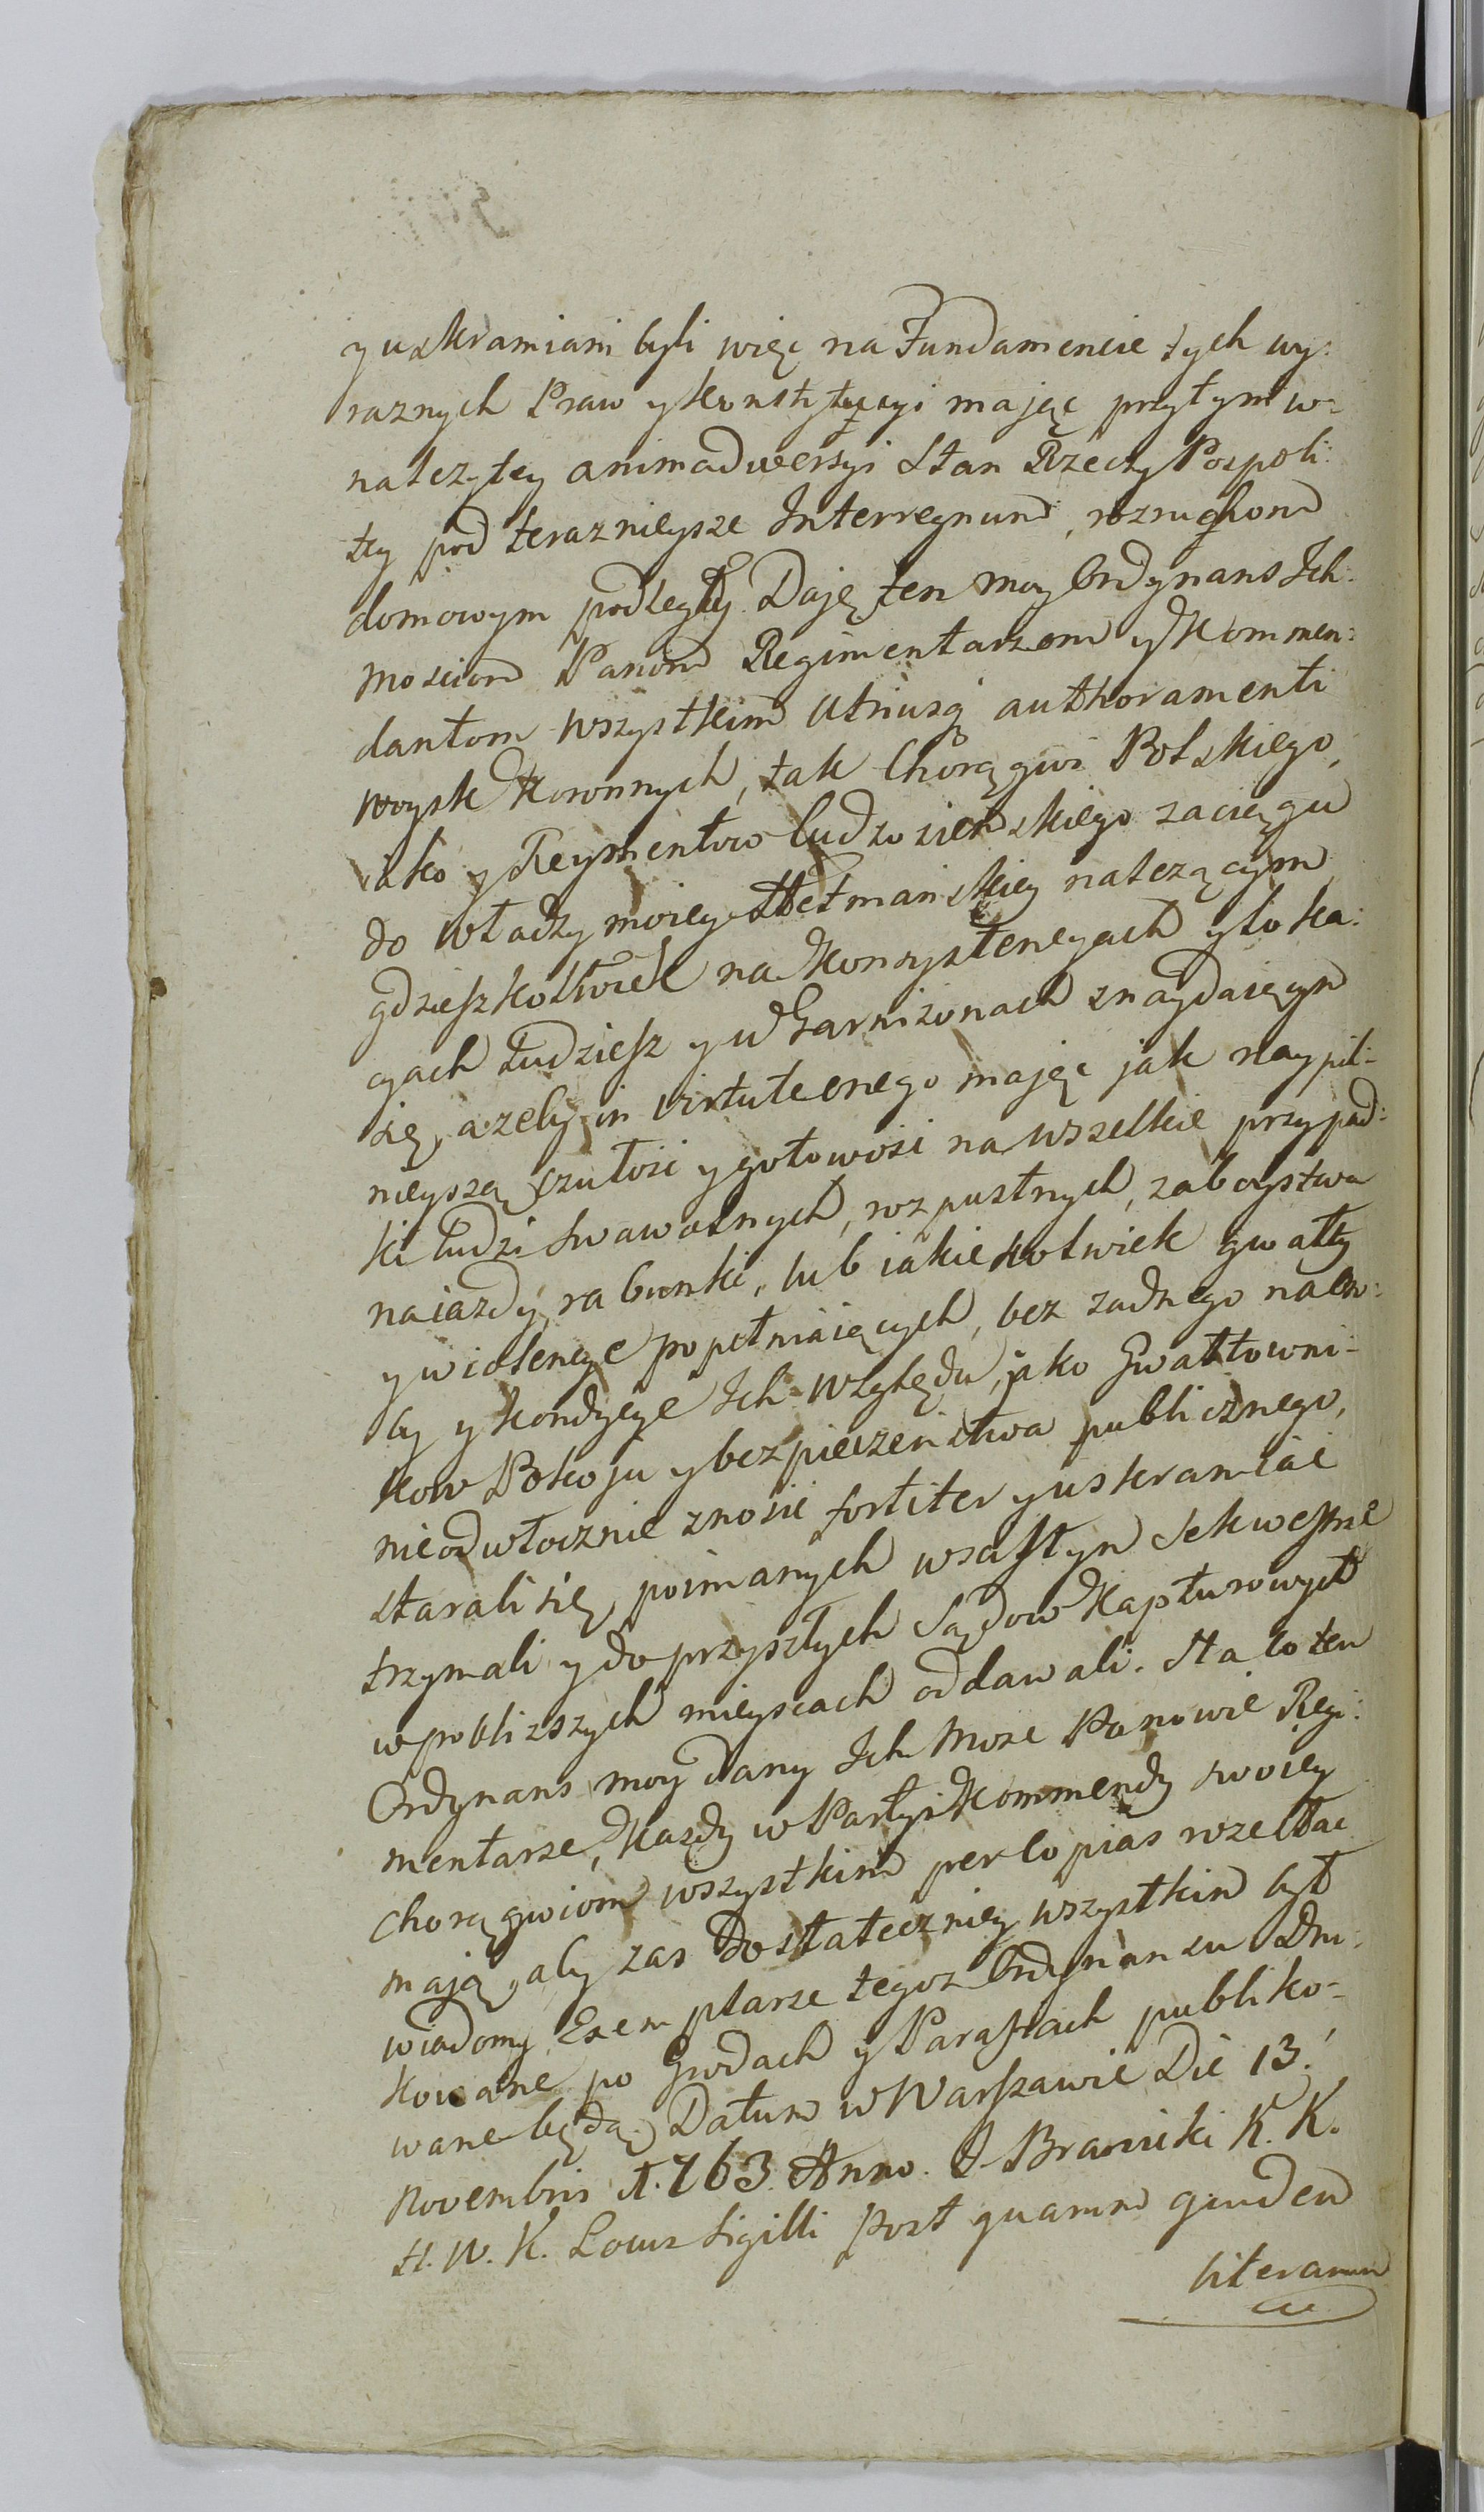 y uskramiani byli więc na Fundamencie tych wy:
raznych Praw y Konstytucyi mając przytym w
nalezytey animadwersyi Stan Rzeczy Pospoli:
tey pod teraznieysze Interregnum, rozruchom
domowym podległey. Daję ten moy Ordynans Ich:
Mosciom Panom Regimentarzom y Kommen:
dantom wszystkim utriusq authoramenti
woysk Koronnych, tak Chorągwi Polskiego,
iako y Reymentow Cudzoziemskiego zaciągu
do władzy moiey Hetmanskiey nalezącym
gdzieszkolwiek na Konsystencyach y loka:
cyach tudziesz y w Garnizonach znayduiącym
się, azeby in virtute onego mając jak naypil-
nieyszą czułość y gotowość na wszelkie przypad:
ki ludzi swawolnych, rozpustnych, zaboystwa
naiazdy, rabunki, lub iakiekolwiek gwałty
y wiolencye popełniaiących, bez zadnego na Oso:
by y Kondycye Ich względu, jako Gwałtowni-
kow Pokoju y bezpieczenstwa publicznego,
nieodwłocznie znosic fortiter y uskramiac
starali się, poimanych w scisłym sekwestrze
trzymali y do przyszłych Sądow Kapturowych
w poblizszych mieyscach oddawali. Na co ten
Ordynans moy dany Ich Mosc Panowie Regi:
mentarze, Kazdy w Partyi Kommendy swoiey
chorągwiom wszystkim per Copias rozesłac
mają, aby zas dostateczniey wszystkim był
wiadomy, Exemplarze tegoz Ordynansu Dru:
kowane po Grodach y Parafiach publiko-
wane będą. Datum w Warszawie Die 13.
Novembris A. 763. Anno. J. Branicki K. K.
H. W. K. Locus Sigilli Post quarum quidem
literarum